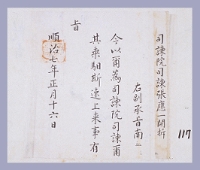 司諫院司諫張應一開拆
右副承旨南〻
今以爾爲司諫院司諫爾
其乘馹斯速上來事有
旨
順治七年正月十六日
117